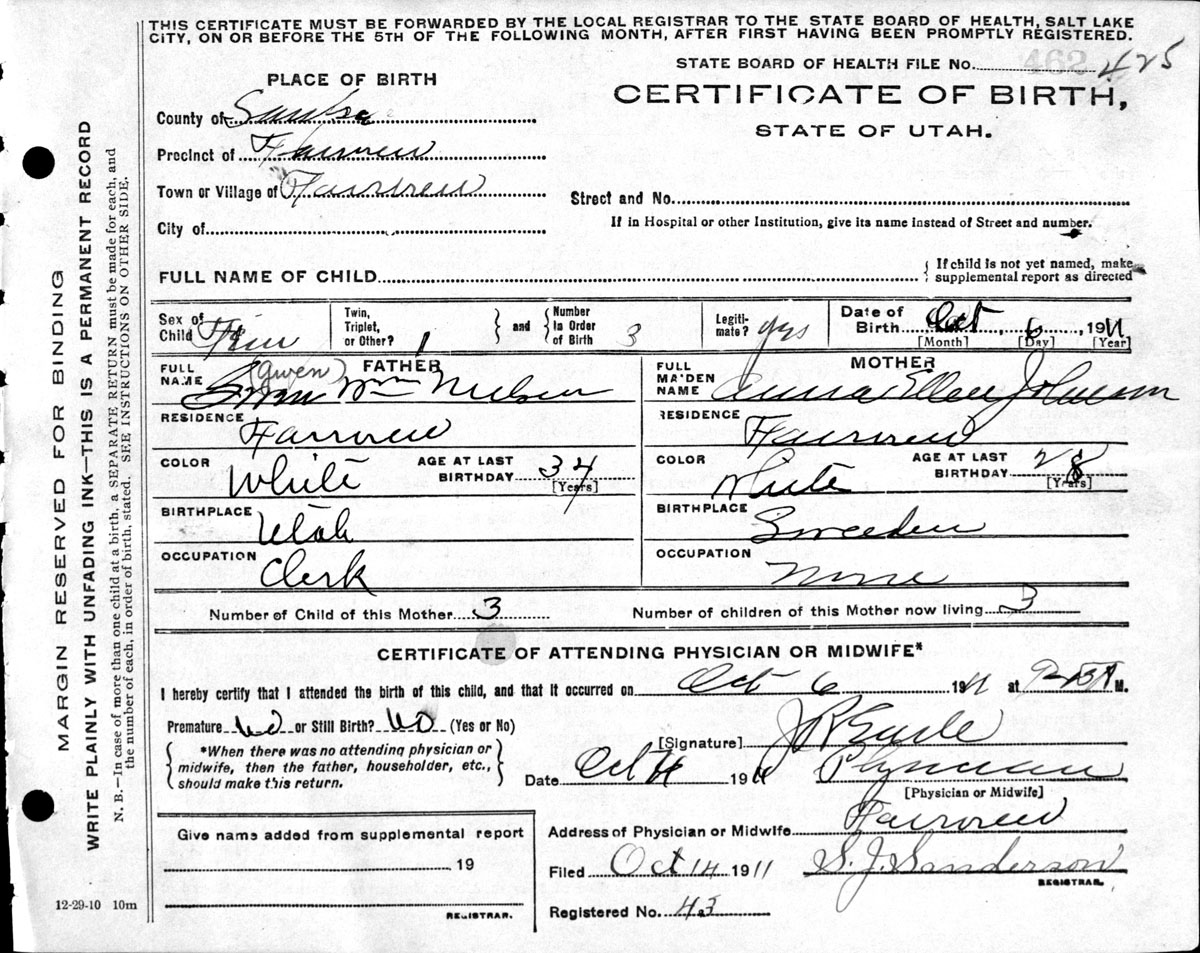 THIS CERTIFICATE MUST BE FORWARDED BY THE LOCAL REGISTRAR TO THE STATE BOARD OF HEALTH, SALT LAKE
CITY, ON OR BEFORE THE 5TH OF THE FOLLOWING MONTH, AFTER FIRST HAVING BEEN PROMPTLY REGISTERED.
STATE BOARD OF HEALTH FILE No. 462 425
PLACE OF BIRTH
CERTIFICATE OF BIRTH,
STATE OF UTAH.
County of
Precinct of Fairview
Town or Village of Fairview
Street and No.
City of
If in Hospital or other Institution, give its name instead of Street and number.
FULL NAME OF CHILD
{ If child is not yet named, make
supplemental report as directed
Sex of Child Fem
Twin, Triplet, or Other? 1
} and { Number in Order of Birth 3
Legiti-mate? yes
Date of Birth Oct 6, 1911
[Month] [Day] [Year]
FULL NAME FATHER (Gwen) Wm Nielsen
FULL MAIDEN NAME MOTHER Anna Ellen Johnson
RESIDENCE Fairview
RESIDENCE Fairview
COLOR White AGE AT LAST BIRTHDAY 34 [Years]
COLOR White AGE AT LAST BIRTHDAY 28 [Years]
BIRTHPLACE Utah
BIRTHPLACE Sweeden
OCCUPATION Clerk
OCCUPATION None
Number of Child of this Mother 3 Number of children of this Mother now living 3
CERTIFICATE OF ATTENDING PHYSICIAN OR MIDWIFE*
I hereby certify that I attended the birth of this child, and that it occurred on Oct 6 1911 at M.
Premature No or Still Birth? No (Yes or No)
*When there was no attending physician or
midwife, then the father, householder, etc.,
should make this return.
[Signature]
Date Oct 1911 Physician
[Physician or Midwife]
Give name added from supplemental report
19
REGISTRAR.
Address of Physician or Midwife Fairview
Filed Oct 14 1911 S. J. Sanderson
REGISTRAR.
Registered No. 43
12-29-10 10m
MARGIN RESERVED FOR BINDING
WRITE PLAINLY WITH UNFADING INK—THIS IS A PERMANENT RECORD
N. B.—In case of more than one child at a birth, a SEPARATE RETURN must be made for each, and
the number of each, in order of birth, stated. SEE INSTRUCTIONS ON OTHER SIDE.